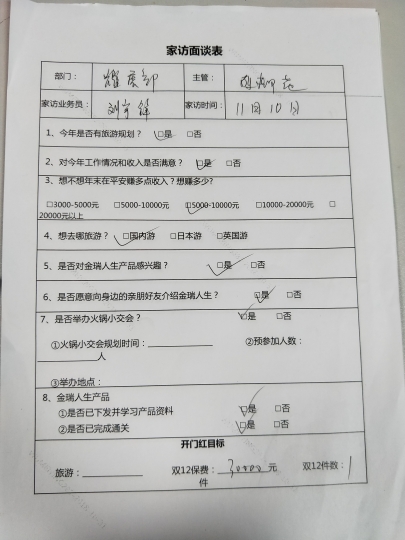 家访面谈表
部门： 主管：
家访业务员： 家访时间： 11月10月
1、今年是否有旅游规划？ □是 □否
2、对今年工作情况和收入是否满意？ □是 □否
3、想不想年末在平安赚多点收入？想赚多少?
□3000-5000元 □5000-10000元 □5000-10000元 □10000-20000元 □
20000元以上
4、想去哪旅游？ □国内游 □日本游 □英国游
5、是否对金瑞人生产品感兴趣？ □是 □否
6、是否愿意向身边的亲朋好友介绍金瑞人生？ □是 □否
7、是否举办火锅小交会？ □是 □否
①火锅小交会规划时间：__________ ②预参加人数：
__________人
③举办地点：
8、金瑞人生产品
①是否已下发并学习产品资料 □是 □否
②是否已完成通关 □是 □否
开门红目标
旅游：__________ 双12保费：30000元 双12件数：1
件